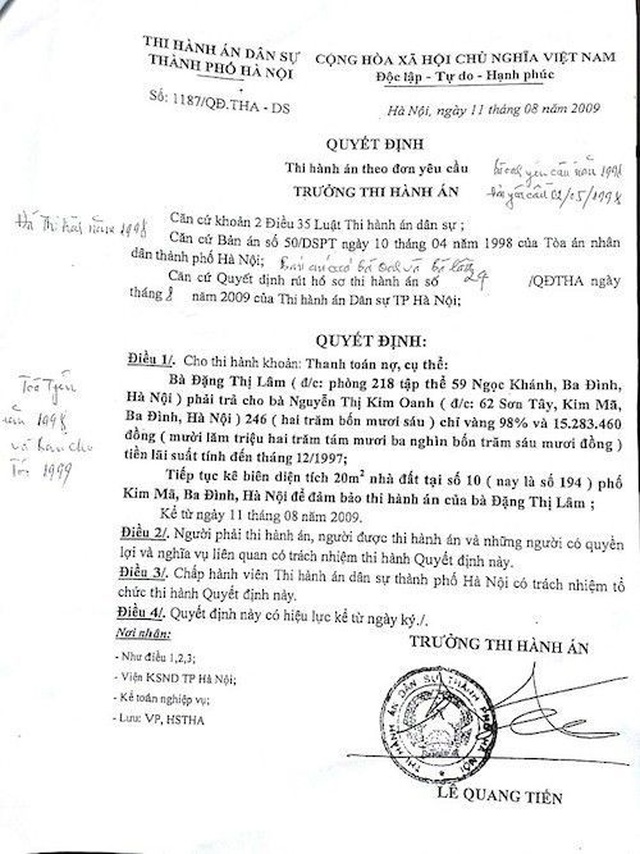 THI HÀNH ÁN DÂN SỰ
THÀNH PHỐ HÀ NỘI
Số: 1187/QĐ.THA - DS
CỘNG HÒA XÃ HỘI CHỦ NGHĨA VIỆT NAM
Độc lập - Tự do - Hạnh phúc
Hà Nội, ngày 11 tháng 08 năm 2009
QUYẾT ĐỊNH
Thi hành án theo đơn yêu cầu
TRƯỞNG THI HÀNH ÁN
yêu cầu năm 1998
yêu cầu 02/05/1998
Đã Thi hành năm 1998
Căn cứ khoản 2 Điều 35 Luật Thi hành án dân sự ;
Căn cứ Bản án số 50/DSPT ngày 10 tháng 04 năm 1998 của Tòa án nhân
dân thành phố Hà Nội;
Căn cứ Quyết định rút hồ sơ thi hành án số 29 /QĐTHA ngày
tháng 8 năm 2009 của Thi hành án Dân sự TP Hà Nội;
QUYẾT ĐỊNH:
Điều 1/. Cho thi hành khoản: Thanh toán nợ, cụ thể:
Bà Đặng Thị Lâm ( đ/c: phòng 218 tập thể 59 Ngọc Khánh, Ba Đình,
Hà Nội ) phải trả cho bà Nguyễn Thị Kim Oanh ( đ/c: 62 Sơn Tây, Kim Mã,
Ba Đình, Hà Nội ) 246 ( hai trăm bốn mươi sáu ) chỉ vàng 98% và 15.283.460
đồng ( mười lăm triệu hai trăm tám mươi ba nghìn bốn trăm sáu mươi đồng )
tiền lãi suất tính đến tháng 12/1997;
Tiếp tục kê biên diện tích 20m² nhà đất tại số 10 ( nay là số 194 ) phố
Kim Mã, Ba Đình, Hà Nội để đảm bảo thi hành án của bà Đặng Thị Lâm ;
Kể từ ngày 11 tháng 08 năm 2009.
năm 1998
và
1999
Điều 2/. Người phải thi hành án, người được thi hành án và những người có quyền
lợi và nghĩa vụ liên quan có trách nhiệm thi hành Quyết định này.
Điều 3/. Chấp hành viên Thi hành án dân sự thành phố Hà Nội có trách nhiệm tổ
chức thi hành Quyết định này.
Điều 4/. Quyết định này có hiệu lực kể từ ngày ký./.
Nơi nhận:
- Như điều 1,2,3;
- Viện KSND TP Hà Nội;
- Kế toán nghiệp vụ;
- Lưu: VP, HSTHA
TRƯỞNG THI HÀNH ÁN
THI HÀNH ÁN DÂN SỰ THÀNH PHỐ HÀ NỘI
LÊ QUANG TIẾN